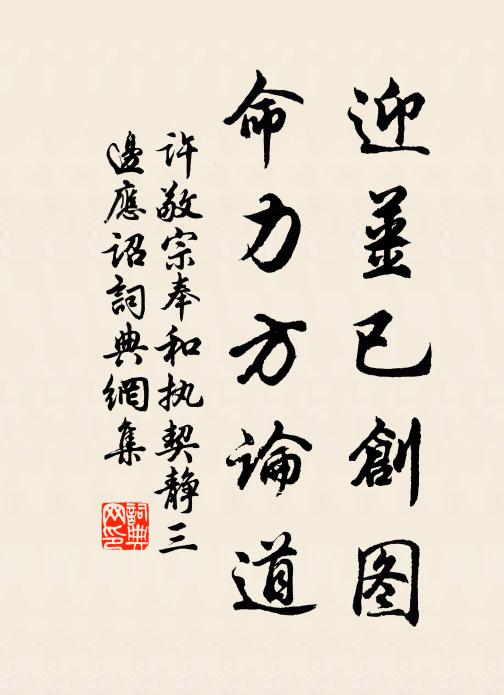 迎薑已創图
命力方論道
許敬宗奉和执契静三
邊應詔詞典網集
詞典
网印